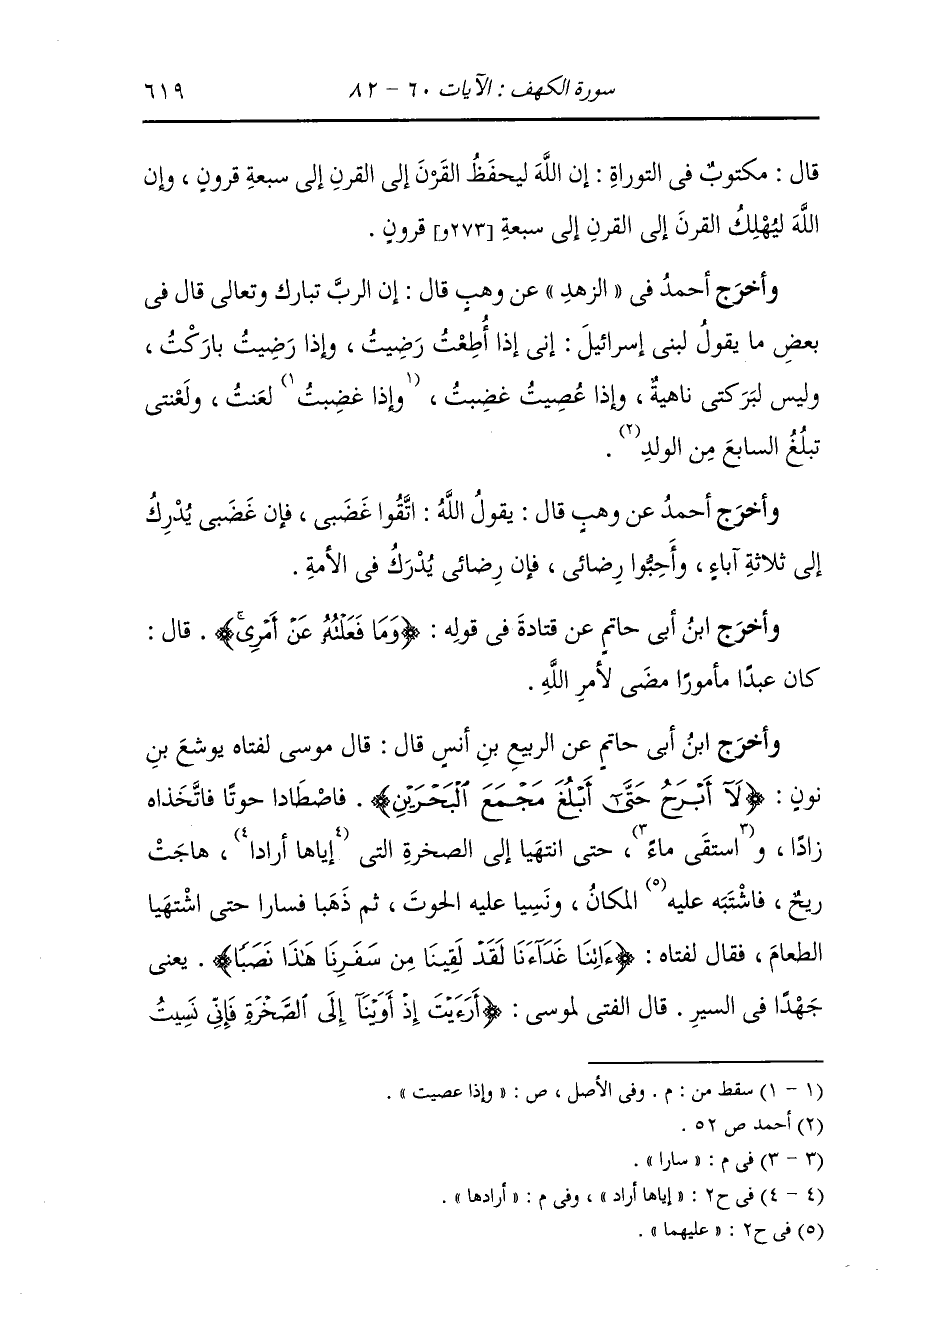 سورة الكهف : الآيات ٦٠ - ٨٢ ٦١٩
قال : مكتوبٌ فى التوراةِ : إن اللَّهَ ليحفَظُ القَرْنَ إلى القرنِ إلى سبعةِ قرونٍ ، وإن
اللَّهَ ليُهْلِكُ القرنَ إلى القرنِ إلى سبعةِ [٢٧٣و] قرونٍ .
وأخرَج أحمدُ فى « الزهدِ » عن وهبٍ قال : إن الربَّ تبارك وتعالى قال فى
بعضِ ما يقولُ لبنى إسرائيلَ : إنى إذا أُطِعْتُ رَضِيتُ ، وإذا رَضِيتُ بارَكْتُ ،
وليس لبَرَكتى ناهيةٌ ، وإذا عُصِيتُ غضِبتُ ، (١وإذا غضِبتُ١) لعَنتُ ، ولَعْنتى
تبلُغُ السابعَ مِن الولدِ(٢) .
وأخرَج أحمدُ عن وهبٍ قال : يقولُ اللَّهُ : اتَّقُوا غَضَبى ، فإن غَضَبى يُدْرِكُ
إلى ثلاثةِ آباءٍ ، وأَحِبُّوا رِضائى ، فإن رِضائى يُدْرَكُ فى الأمةِ .
وأخرَج ابنُ أبى حاتمٍ عن قتادةَ فى قولِه : ﴿وَمَا فَعَلْتُهُ عَنْ أَمْرِىۚ﴾ . قال :
كان عبدًا مأمورًا مضَى لأمرِ اللَّهِ .
وأخرَج ابنُ أبى حاتمٍ عن الربيعِ بنِ أنسٍ قال : قال موسى لفتاه يوشعَ بنِ
نونٍ : ﴿لَآ أَبْرَحُ حَتَّىٰٓ أَبْلُغَ مَجْمَعَ ٱلْبَحْرَيْنِ﴾ . فاصْطَادا حوتًا فاتَّخذاه
زادًا ، و(٣استقَى ماءً٣)، حتى انتهَيا إلى الصخرةِ التى (٤إياها أرادا٤) ، هاجَتْ
ريحٌ ، فاشْتَبَه عليه(٥) المكانُ ، ونَسِيا عليه الحوتَ ، ثم ذَهَبا فسارا حتى اشْتهَيا
الطعامَ ، فقال لفتاه : ﴿ءَاتِنَا غَدَآءَنَا لَقَدْ لَقِينَا مِن سَفَرِنَا هَٰذَا نَصَبًا﴾ . يعنى
جَهْدًا فى السيرِ . قال الفتى لموسى : ﴿أَرَءَيْتَ إِذْ أَوَيْنَآ إِلَى ٱلصَّخْرَةِ فَإِنِّى نَسِيتُ
(١ - ١) سقط من : م . وفى الأصل ، ص : « وإذا عصيت » .
(٢) أحمد ص ٥٢ .
(٣ - ٣) فى م : « سارا » .
(٤ - ٤) فى ح٢ : « إياها أراد » ، وفى م : « أرادها » .
(٥) فى ح٢ : « عليهما » .